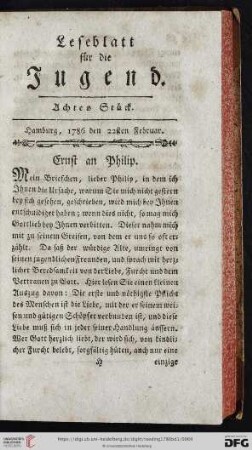 Leseblatt
für die
Jugend.
Achtes Stück.
Hamburg, 1786 den 22sten Februar.
Ernst an Philip.
Mein Briefchen, lieber Philip, in dem ich
Ihnen die Ursache, warum Sie mich nicht gestern
bey sich gesehen, geschrieben, wird mich bey Ihnen
entschuldiget haben; wenn dies nicht, so mag mich
Gottlieb bey Ihnen vertreten. Dieser nahm mich
mit zu seinem Greisen, von dem er uns so oft er-
zählt. Da saß der würdige Alte, umringt von
seinen jugendlichen Freunden, und sprach mit herz-
licher Beredsamkeit von der Liebe, Furcht und dem
Vertrauen zu Gott. Hier lesen Sie einen kleinen
Auszug davon: Die erste und nöthigste Pflicht
des Menschen ist die Liebe, mit der er seinem wei-
sen und gütigen Schöpfer verbunden ist, und diese
Liebe muß sich in jeder seiner Handlung äussern.
Wer Gott herzlich liebt, der wird sich, von kindli-
cher Furcht belebt, sorgfältig hüten, auch nur eine
H einzige